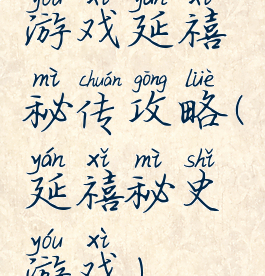 yóu xì yán xǐ
游戏延禧
mì chuán gōng lüè
秘传攻略(
yán xǐ mì shǐ
延禧秘史
yóu xì
游戏)